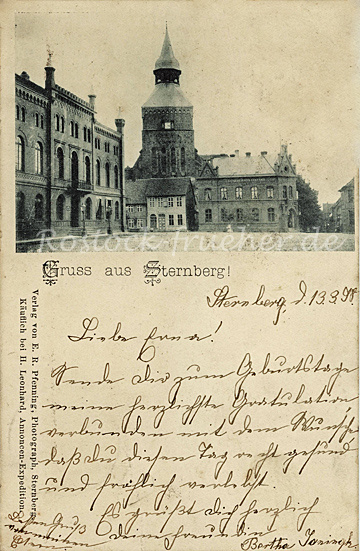 © Rostock-frueher.de
Gruss aus Sternberg!
Verlag von E. R. Pfenning, Photograph, Sternberg.
Käuflich bei H. Leonhard, Annoncen-Expedition.
Sternberg, d. 13.3.
Liebe Erna!
Sende Dir zum Geburtstage
meine herzlichste Gratulation
verbunden mit dem Wunsche
daß Du diesen Tag recht gesund
und fröhlich verlebst.
Es grüßt Dich herzlich
Deine Freundin
Bertha